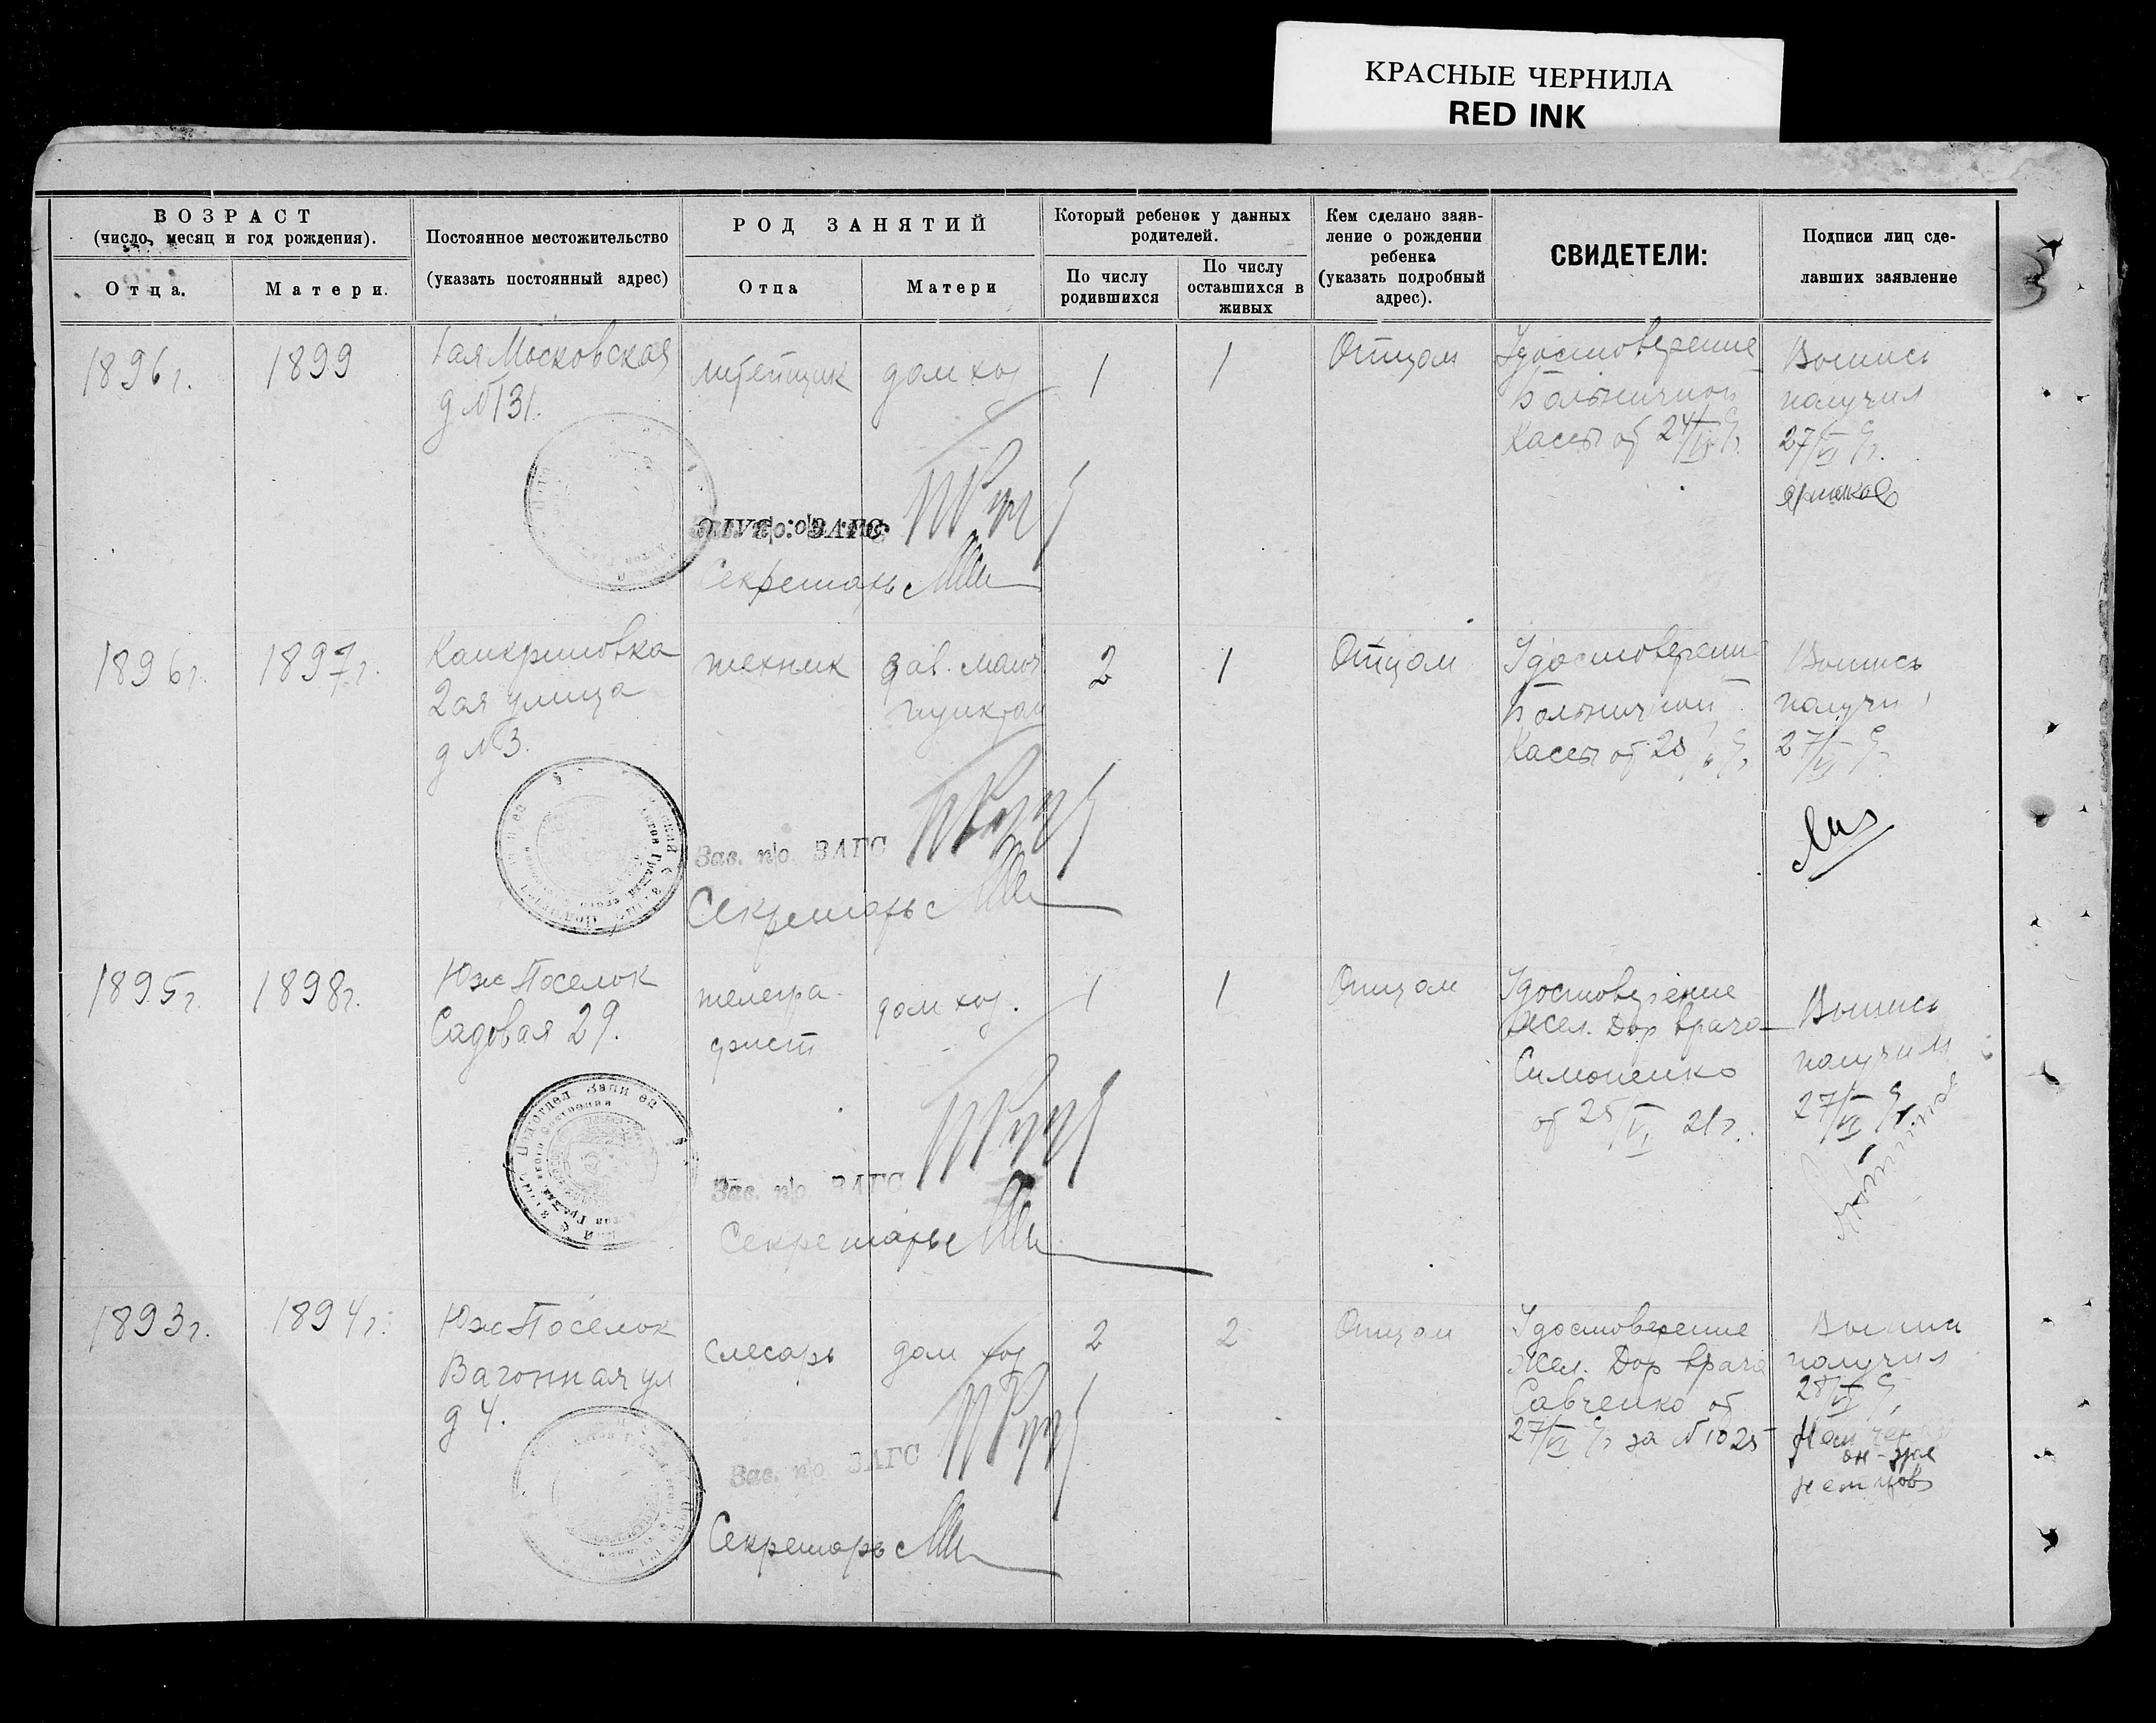 КРАСНЫЕ ЧЕРНИЛА
RED INK
ВОЗРАСТ
(число, месяц и год рождения).
Отца.
Матери.
Постоянное местожительство
(указать постоянный адрес)
РОД ЗАНЯТИЙ
Отца
Матери
Который ребенок у данных
родителей.
По числу
родившихся
По числу
оставшихся в
живых
Кем сделано заяв-
ление о рождении
ребенка
(указать подробный
адрес).
СВИДЕТЕЛИ:
Подписи лиц сде-
лавших заявление
1896 г.
1899
1ая Московская
д № 131.
литейщик
дом хоз
1
1
Отцом
Удостоверение
Больничной
Кассы от 24/VI с/г.
Выпись
получил
27/VI с/г.
ЗАГС
Секретарь
1896 г.
1897 г.
2ая улица
д № 3.
техник
Зав. 
пунктом
2
1
Отцом
Удостоверени
Больничной
Кассы от 
Выпись
получи
27/VI с/г
Зав. п/о. ЗАГС
Секретарь
1895 г.
1898 г.
Юж Поселок
Садовая 29.
телегра-
фист
дом хоз.
1
1
Отцом
Удостоверение
Жел. Дор врача
Симоненко
от 25/VI 21 г.
Выпись
получил
27/VI с/г
Зав. п/о. ЗАГС
Секретарь
1893 г.
1894 г.
Юж Поселок
Вагонная ул
д 4.
слесарь
дом хоз
2
2
Отцом
Удостоверение
Жел. Дор врача
Савченко от
27/VI с/г за № 1025
получил
28/VI с/г
Зав. п/о. ЗАГС
Секретарь